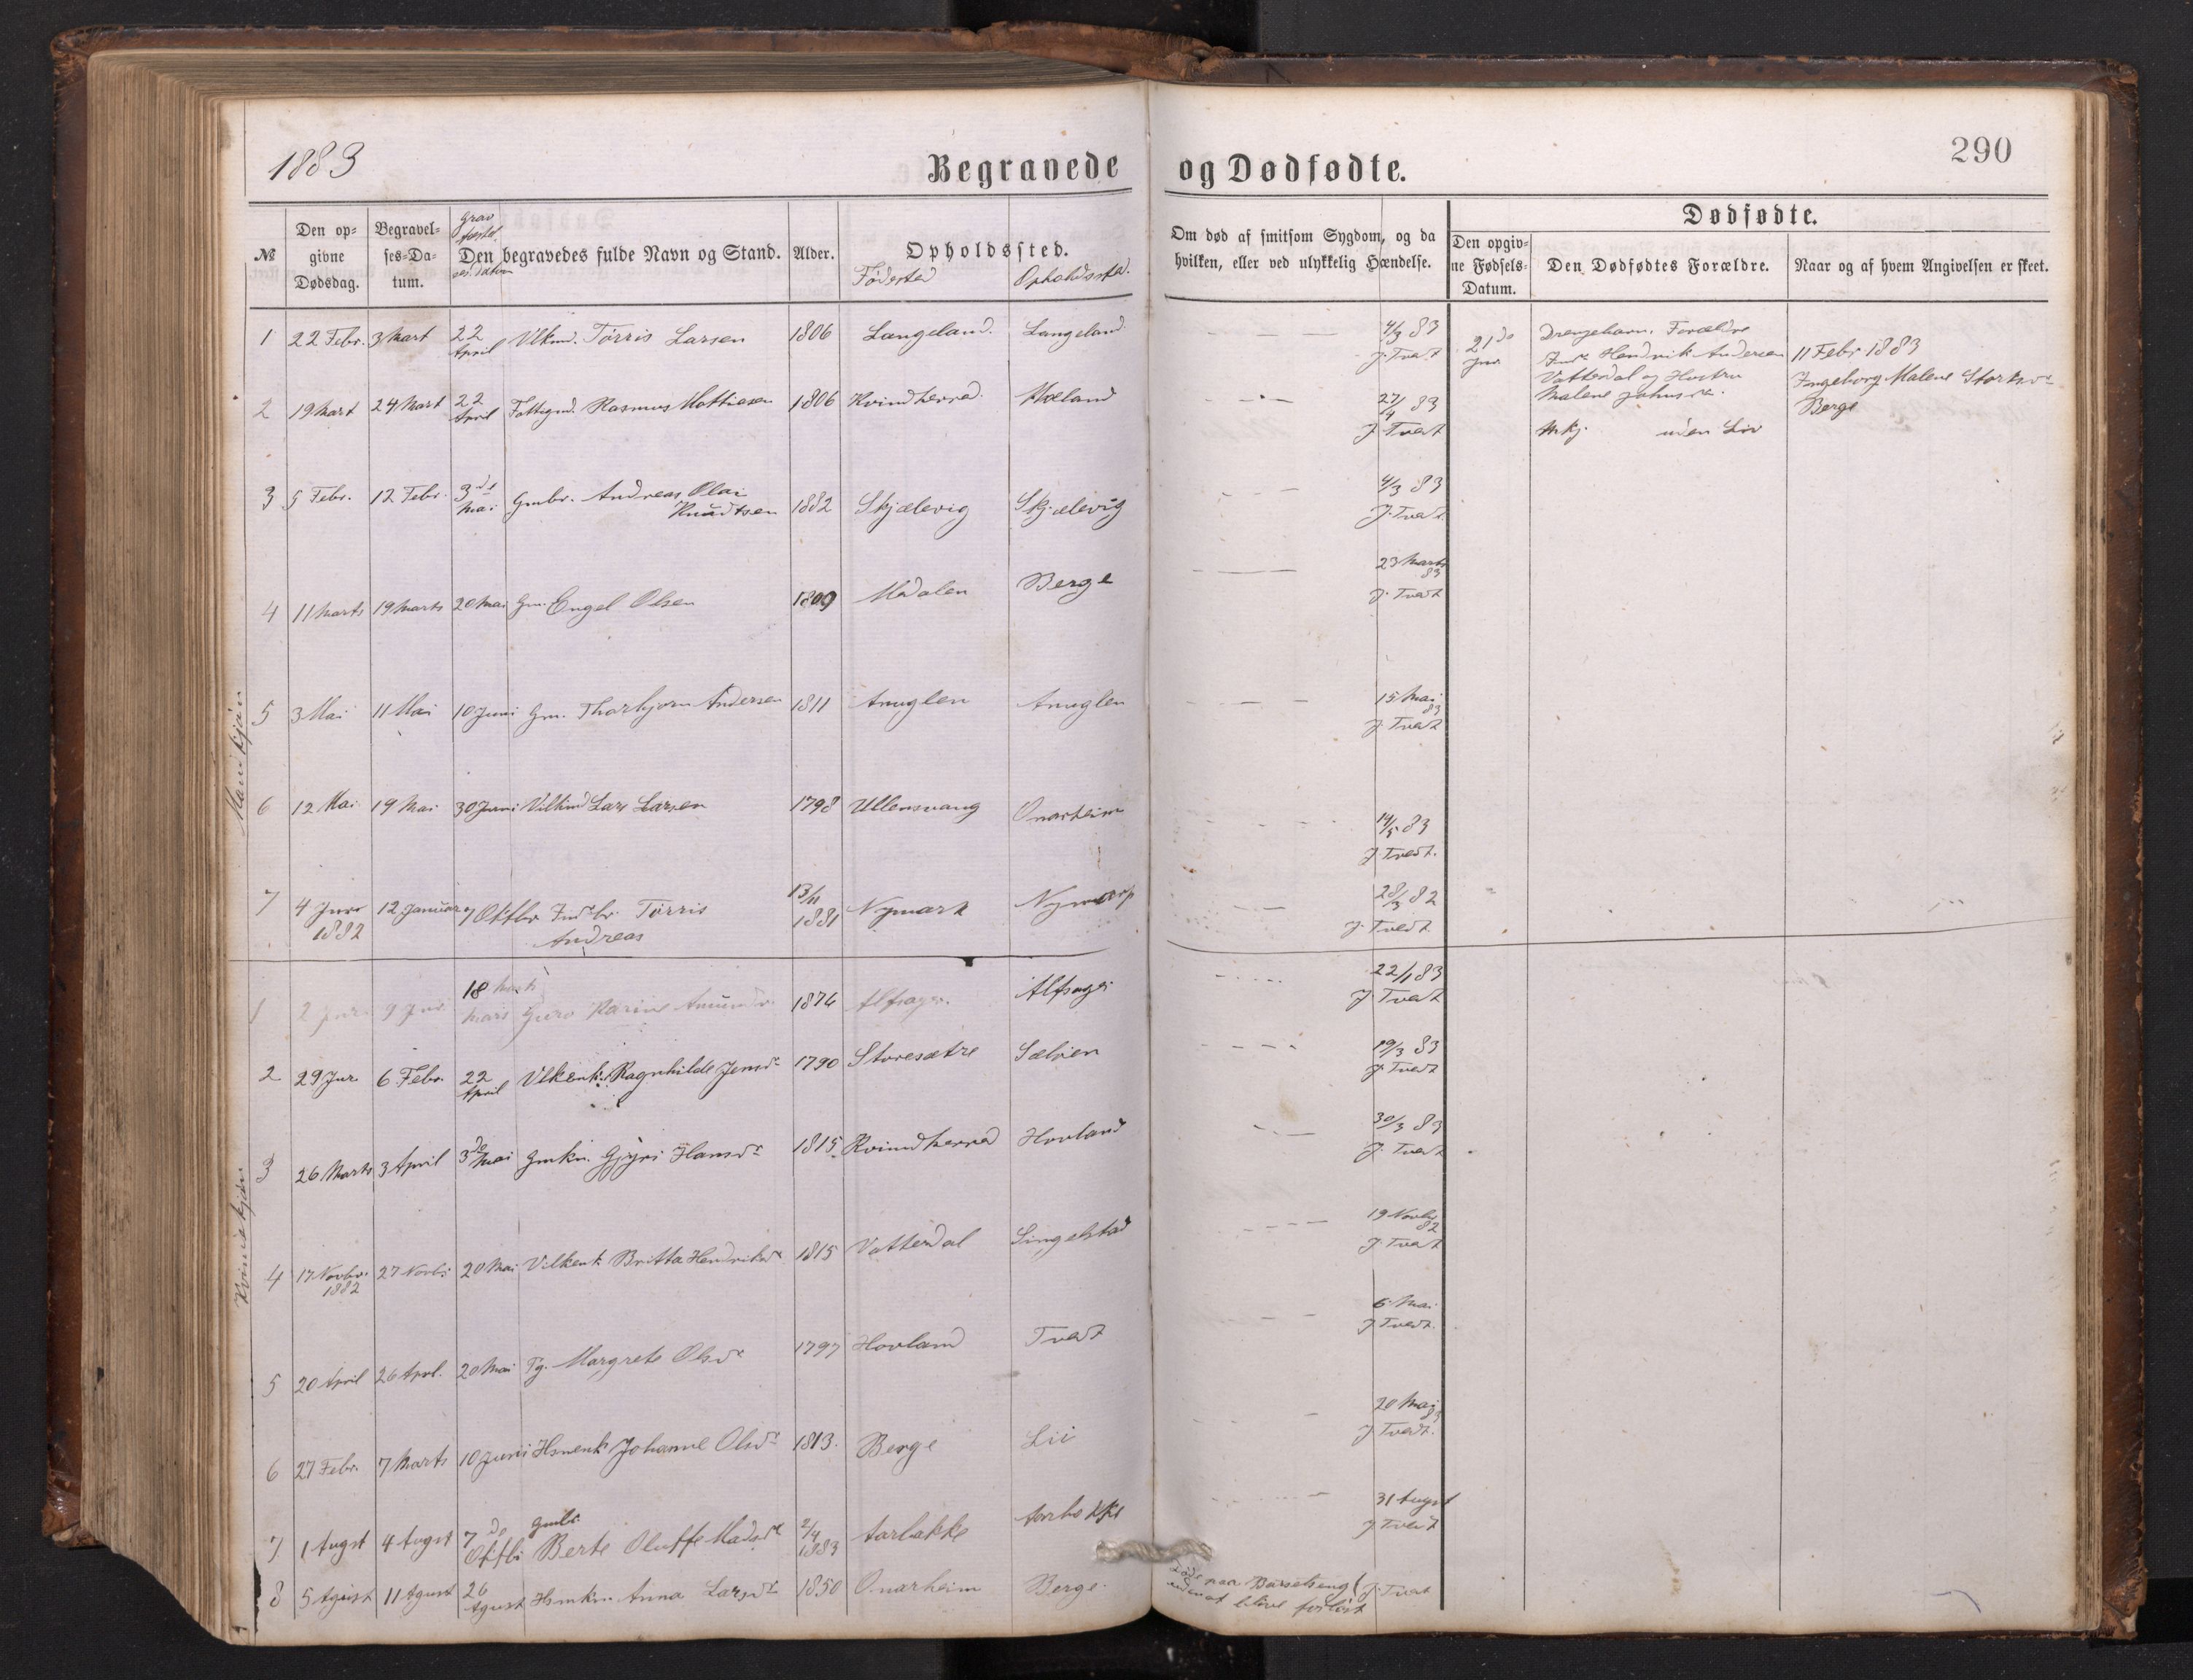 1883
Begravede og Dødfødte.
290
№
Den op=
givne
Dødsdag.
Begravel=
ses=Da=
tum.
Grav
Den begravedes fulde Navn og Stand.
Alder.
Opholdssted.
Fødested
Opholdssted.
Om død af smitsom Sygdom, og da
hvilken, eller ved ulykkelig Hændelse.
Dødfødte.
Den opgiv=
ne Fødsels=
Datum.
Den Dødfødtes Forældre.
Naar og af hvem Angivelsen er skeet.
Mandkjøn
1 22 Febr. 3 Mart 22 April Vlkmd. Tørris Larsen 1806 Langeland. Langeland. 4/3 83
J. Tvedt
21de Jnr
Drengebarn. Forældre
Hendrik Andersen
Vatterdal og Hustru
Malene Johnsdr.
Mkj. uden Liv
11 Febr 1883
Ingeborg Malene Storksdr
Berge
2 19 Mart 24 Mart 22 April Fattigmd. Rasmus Mattiasen 1806 Kvindherred. Hæland 27/4 83
J. Tvedt
3 5 Febr. 12 Febr. 3de Mai Gmbr. Andreas Olai
Knudtsen 1882 Skjælevig Skjælevig 4/3 83
J. Tvedt
4 11 Marts 19 Marts 20 Mai Gm. Engel Olsen 1809 Mdalen Berge 23 Marts 83
J. Tvedt
5 3 Mai 11 Mai 10 Juni Gm. Thorbjørn Andersen 1811 Anuglen Anuglen 15 Mai 83
J. Tvedt
6 12 Mai 19 Mai 30 Juni Vilkmd Lars Larsen 1798 Ullensvang Onarheim 14/5 83
J. Tvedt.
7 4 Jnr 1882 12 Januar 7 Oktbr Indrbr. Tørris
Andreas 13/11 1881 Nymark Nymark 28/3 82
J. Tvedt
Kvindekjøn
1 2 Jnr. 9 Jnr 18 Mars Guro Karine Amundsdr. 1874 Alfsager. Alfsager 22/1 83
J. Tvedt
2 29 Jnr 6 Febr. 22 April Vlkenk. Ragnhilde Jensdr 1790 Storesætre Sælvien 19/3 83
J. Tvedt
3 26 Marts 3 April 3de Mai Gmkn. Gjyri Hansdr 1815 Kvindherred Hovland 30/3 83
J. Tvedt
4 17 Novbr. 1882 27 Novbr 20 Mai Vilkenk. Britta Hendriksdr 1815 Vatterdal Singelstad 19 Novbr 82
J. Tvedt
5 20 April 26 Aprl. 20 Mai Tg. Margrete Olsdr 1797 Hovland Tvedt 6 Mai
J. Tvedt.
6 27 Febr. 7 Marts 10 Juni Hsmenk Johanne Olsdr 1813. Berge Lii 20 Mai 83
J. Tvedt.
7 1 Augst 4 Augst 7de Oktbr Gmbr. Berte Oluffe Madsdr 2/4 1883 Aarbakke Aarbakke 31 Augst
J. Tvedt
8 5 Agust 11 Agust 26 Agust Hsmkn. Anna Larsdr 1850 Onarheim Berge. Døde paa Barselseng
uden at blive forløst J. Tvedt